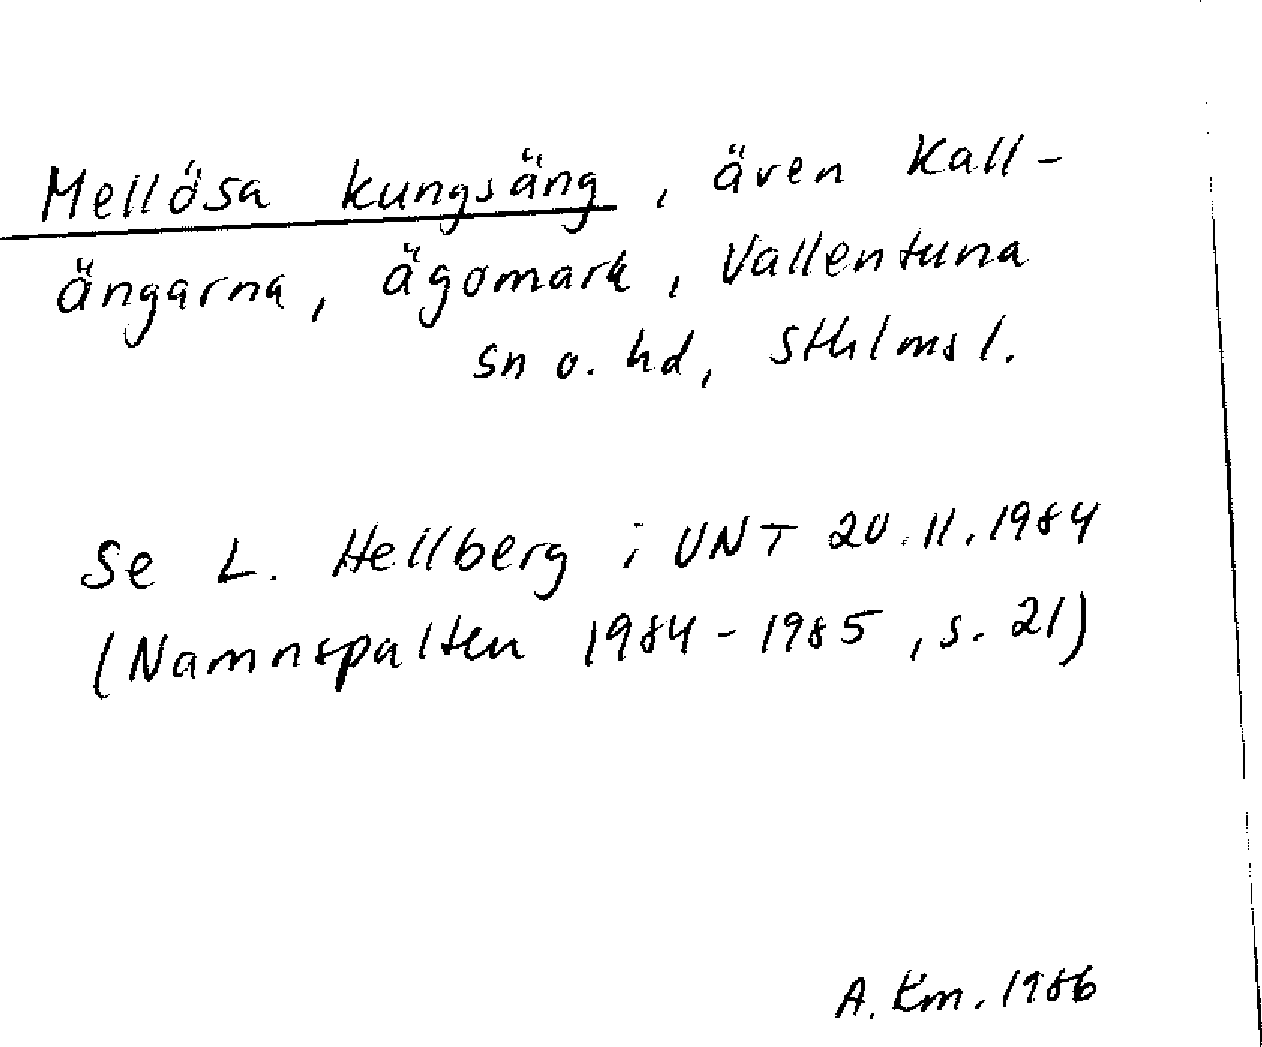 Mellösa kungsäng, även Kall-
ängarna, ägomark, Vallentuna
sn o. hd, Sthlms l.
Se L. Hellberg i UNT 20.11.1984
(Namnspalten 1984-1985, s. 21)
A. Km. 1986